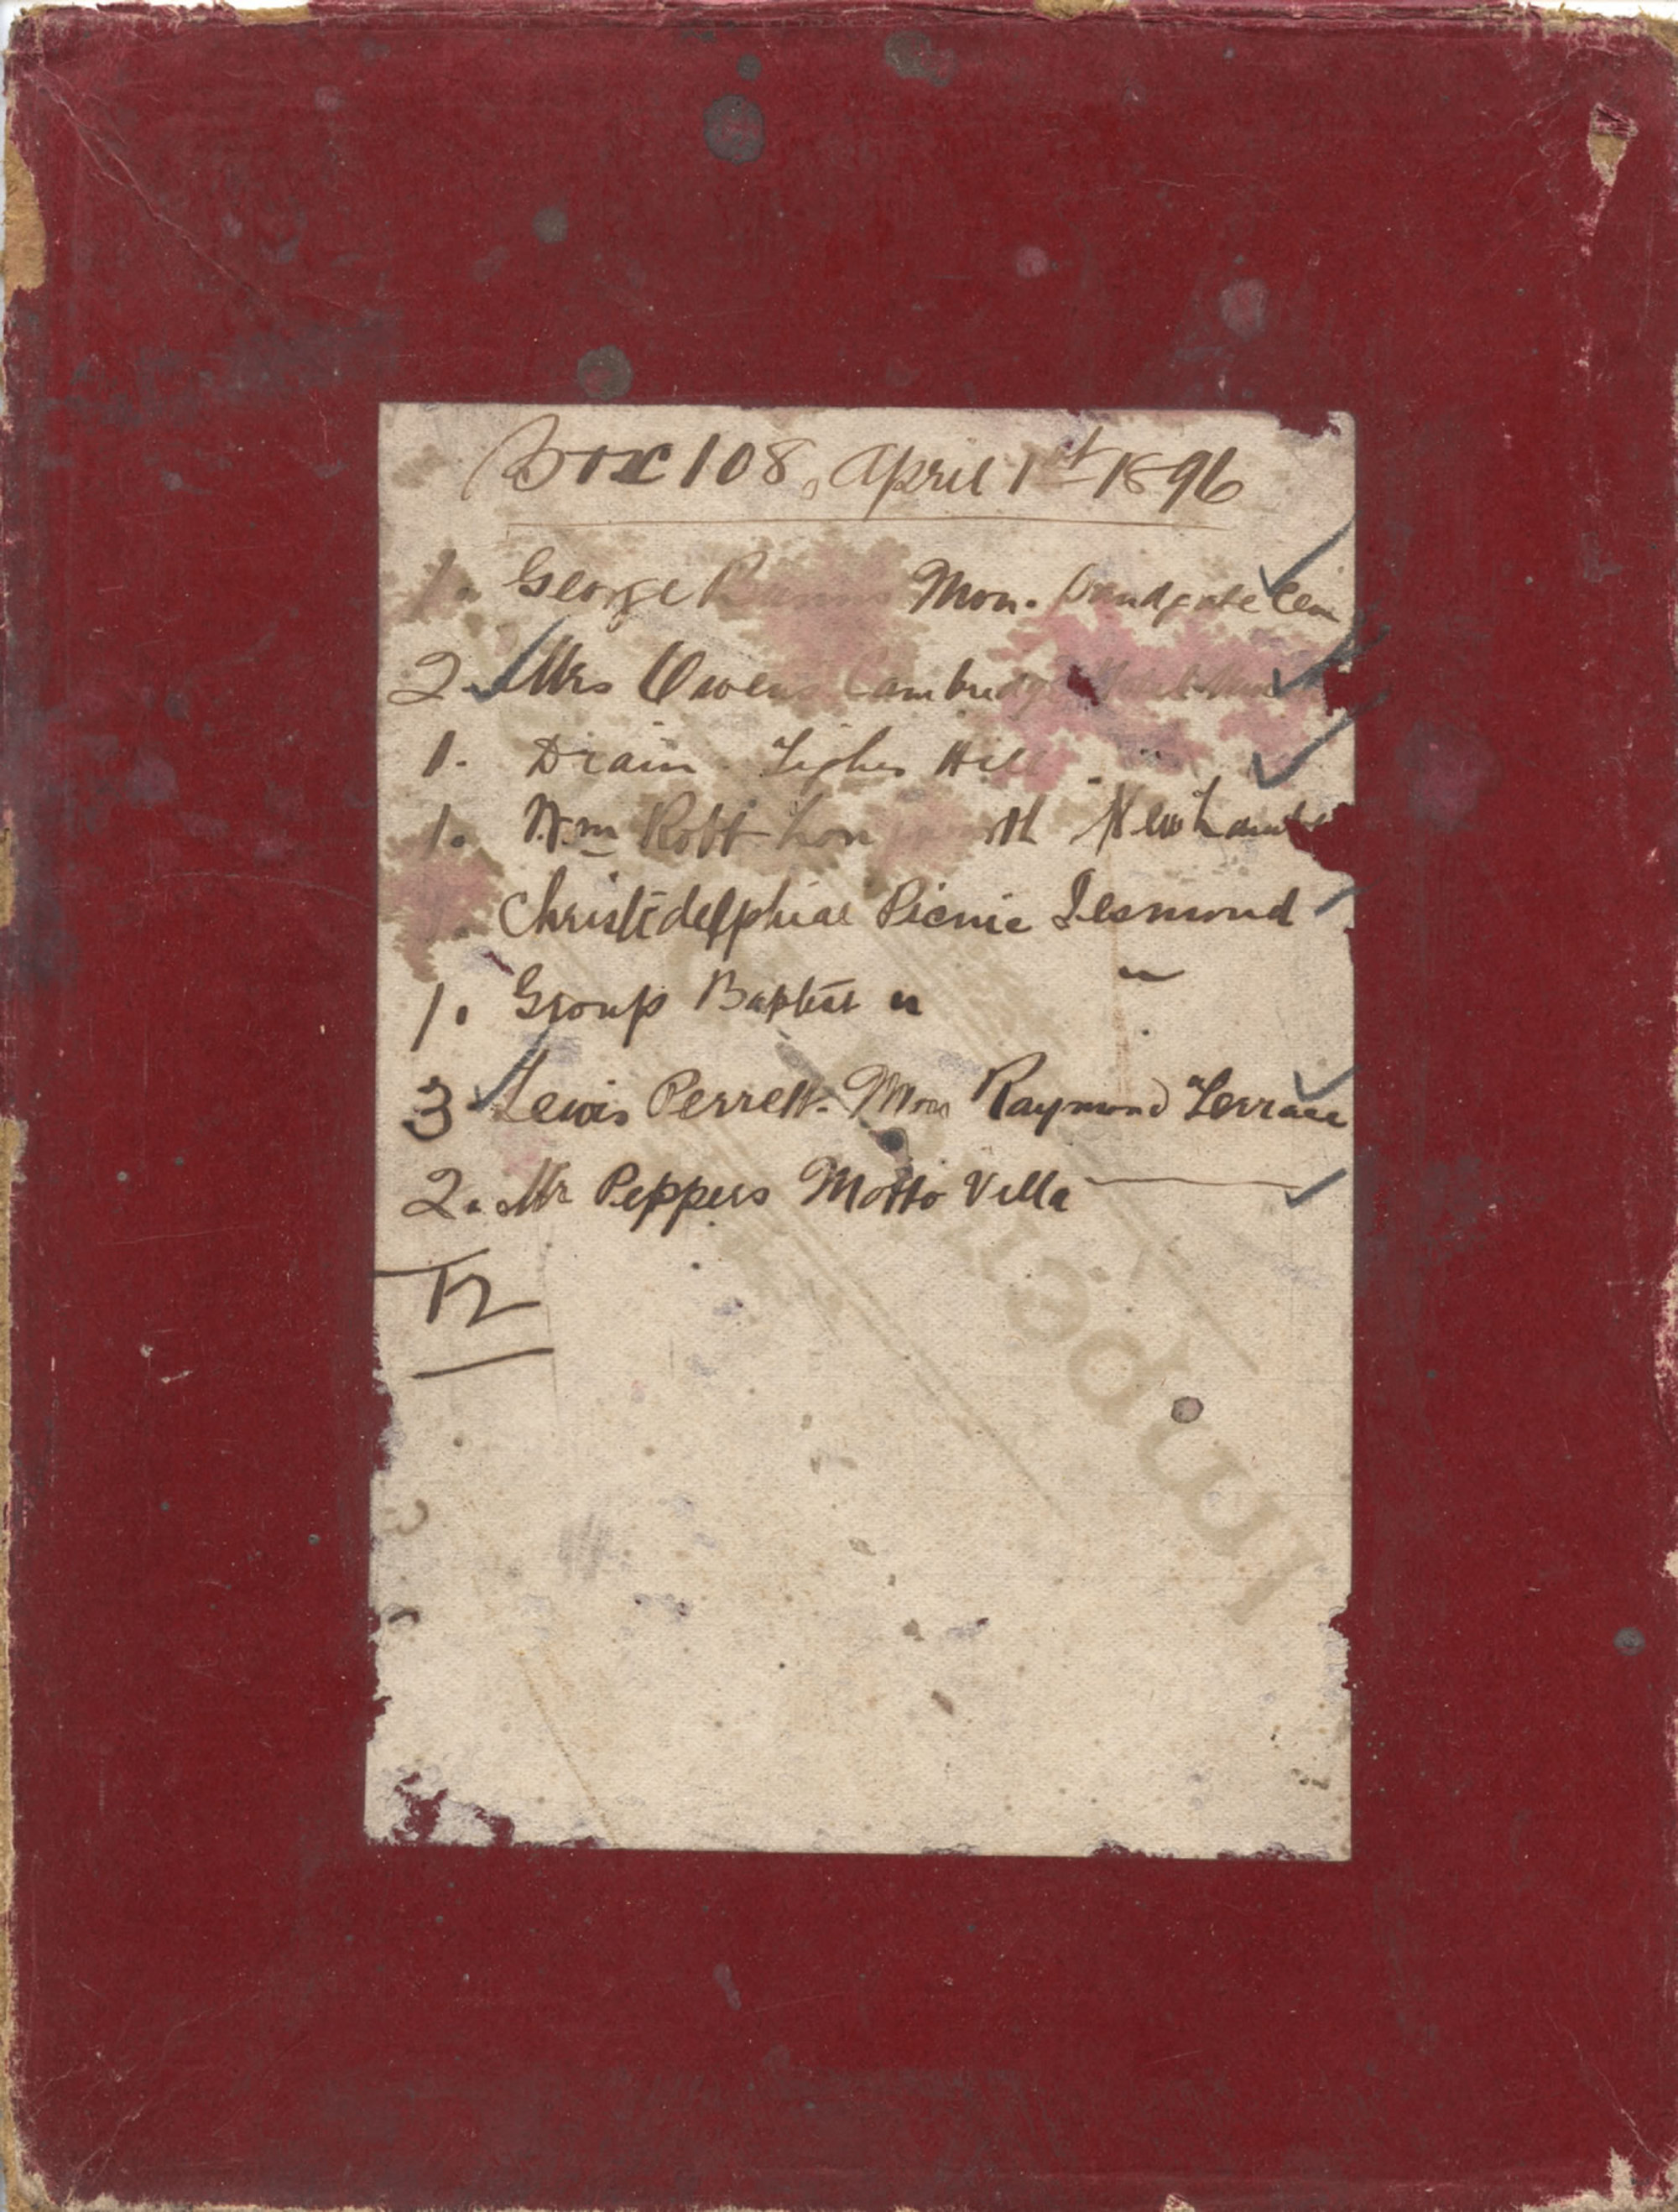 Box 108, April 1st 1896
1. George Mon. Sandgate Cem
2. Mrs Owens Cambridge
1. Drain Tighes Hill
1. Wm Robt New Lambt
1. Christidelphial Picnic Jesmond
1. Group Baptist " "
3 Lewis Perrett. Mon Raymond Terrace
2. Mr Peppers Motto Villa
12
Imperial